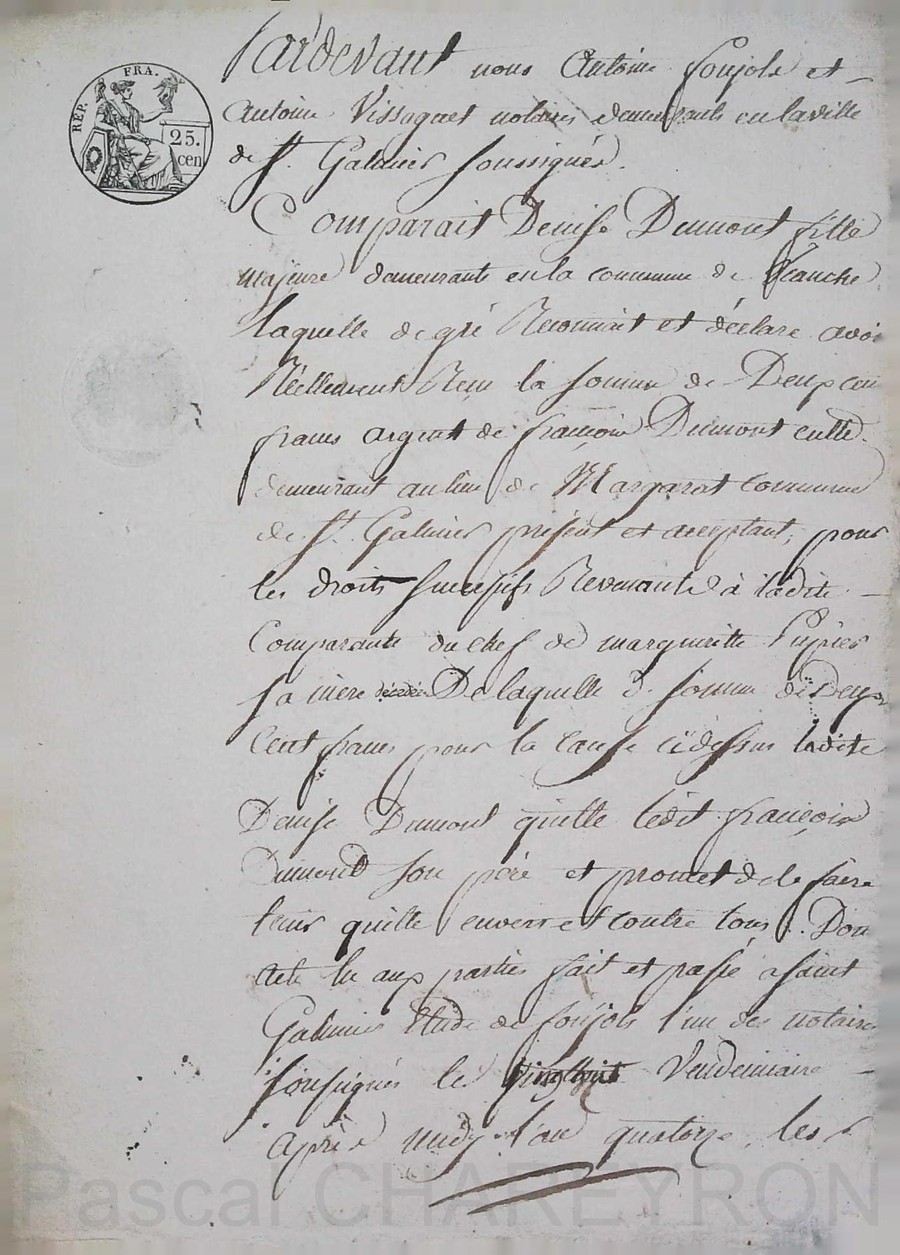 REP. FRA.
25.
cen
Pardevant nous Antoine Soujols et
Antoine Vissaguet notaires demeurants en la ville
de St. Galmier soussignés.
Comparait Denise Dumont fille
majeure demeurante en la commune de
laquelle de gré Reconnait et déclare avoir
Réellement Reçu la somme de Deux cent
francs argent de françois Dumont cultr.
demeurant au lieu de Margarat commune
de St. Galmier présent et acceptant, pour
les droits successifs Revenants à ladite
Comparante du chef de marguerite Pupier
sa mère décédée De laquelle d. somme de Deux
Cent francs pour la cause cidessus ladite
Denise Dumont quitte ledit françois
Dumond son père et promet de le faire
tenir quitte envers et contre tous. Dont
acte lu aux parties fait et passé a saint
Galmier Etude de Soujols l'un des notaires
soussignés le vingt huit Vendemiaire
après midy l'an quatorze, les
Pascal CHAREYRON